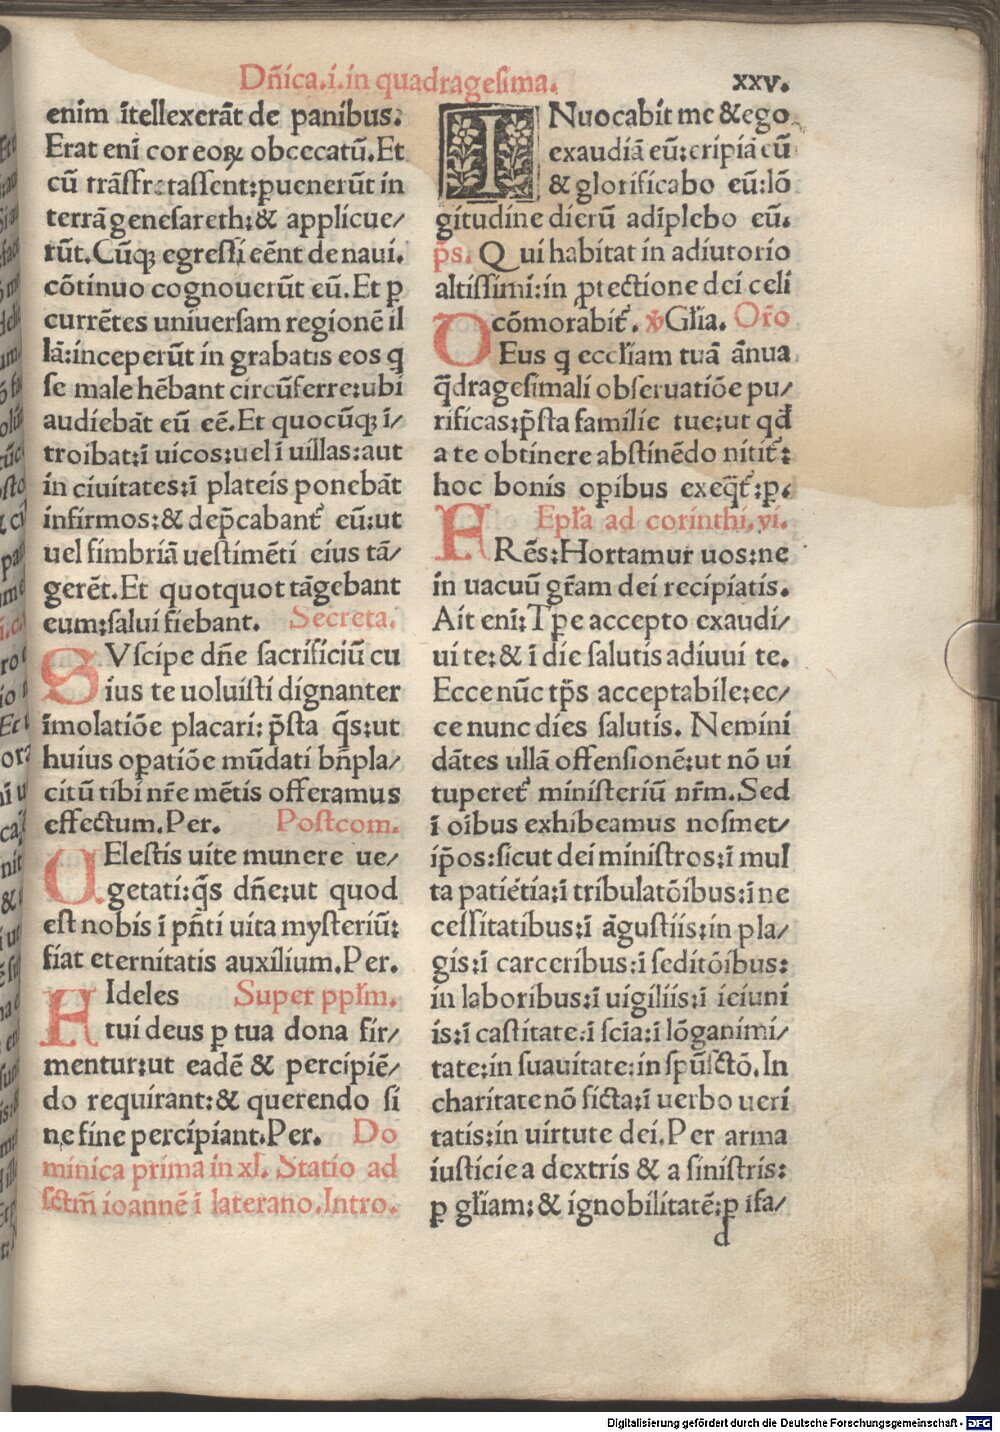 Dn̄ica.i.in quadragesima. xxv.
enim ītellexerāt de panibus.
Erat eni cor eoꝝ obcecatū.Et
cū trāsfretassent:puenerūt in
terrā genesareth:& applicue/
rūt.Cūqꝫ egressi eēnt de naui.
cōtinuo cognouerūt eū.Et ꝑ
currētes uniuersam regionē il
lā:inceperūt in grabatis eos q̄
se male hēbant circūferre:ubi
audiebāt eū eē.Et quocūqꝫ ī/
troibat:ī uicos:uel ī uillas:aut
in ciuitates:ī plateis ponebāt
infirmos:& dep̄cabantᷣ eū:ut
uel fimbriā uestimēti eius tā/
gerēt.Et quotquot tāgebant
eum:salui fiebant. Secreta.
SVscipe dn̄e sacrificiū cu
ius te uoluisti dignanter
īmolatiōe placari: p̄sta q̄s:ut
huius oꝑatiōe mūdati bn̄pla/
citū tibi nr̄e mētis offeramus
effectum.Per. Postcom.
CElestis uite munere ue/
getati:q̄s dn̄e:ut quod
est nobis ī pn̄ti uita mysteriū:
fiat eternitatis auxilium.Per.
FIdeles Super pp̄lm.
tui deus ꝑ tua dona fir/
mentur:ut eadē & percipiē/
do requirant:& querendo si
ne fine percipiant.Per. Do
minica prima in xl. Statio ad
sctm̄ ioannē ī laterano.Intro.
INuocabit me & ego
exaudiā eū:eripiā eū
& glorificabo eū:lō
gitudine dierū adīplebo eū.
p̄s. Qui habitat in adiutorio
altissimi:in ꝓtectione dei celi
cōmorabitᷣ. ꝟ Gl̄ia. Or̄o
DEus q̄ eccl̄iam tuā ānua
q̄dragesimali obseruatiōe pu/
rificas:p̄sta familie tue:ut qd̄
a te obtinere abstinēdo nititᷣ:
hoc bonis opibus exeq̄tᷣ:p.
Epl̄a ad corinthi.vi.
FRēs:Hortamur uos:ne
in uacuū gr̄am dei recipiatis.
Ait eni:Tꝑe accepto exaudi/
ui te:& ī die salutis adiuui te.
Ecce nūc tp̄s acceptabile:ec/
ce nunc dies salutis. Nemini
dātes ullā offensionē:ut nō ui
tuperetᷣ ministeriū nr̄m.Sed
ī oībus exhibeamus nosmet/
ip̄os:sicut dei ministros:ī mul
ta patiētia:ī tribulatōibus:ī ne
cessitatibus:ī āgustiis:in pla/
gis:ī carceribus:ī seditōibus:
in laboribus:ī uigiliis:ī ieiuni
is:ī castitate:ī scia:ī lōganimi/
tate:in suauitate:in spū sctō.In
charitate nō ficta:ī uerbo ueri
tatis:in uirtute dei.Per arma
iusticie a dextris & a sinistris:
ꝑ gl̄iam:& ignobilitatē:ꝑ ifa/
d
Digitalisierung gefördert durch die Deutsche Forschungsgemeinschaft - DFG